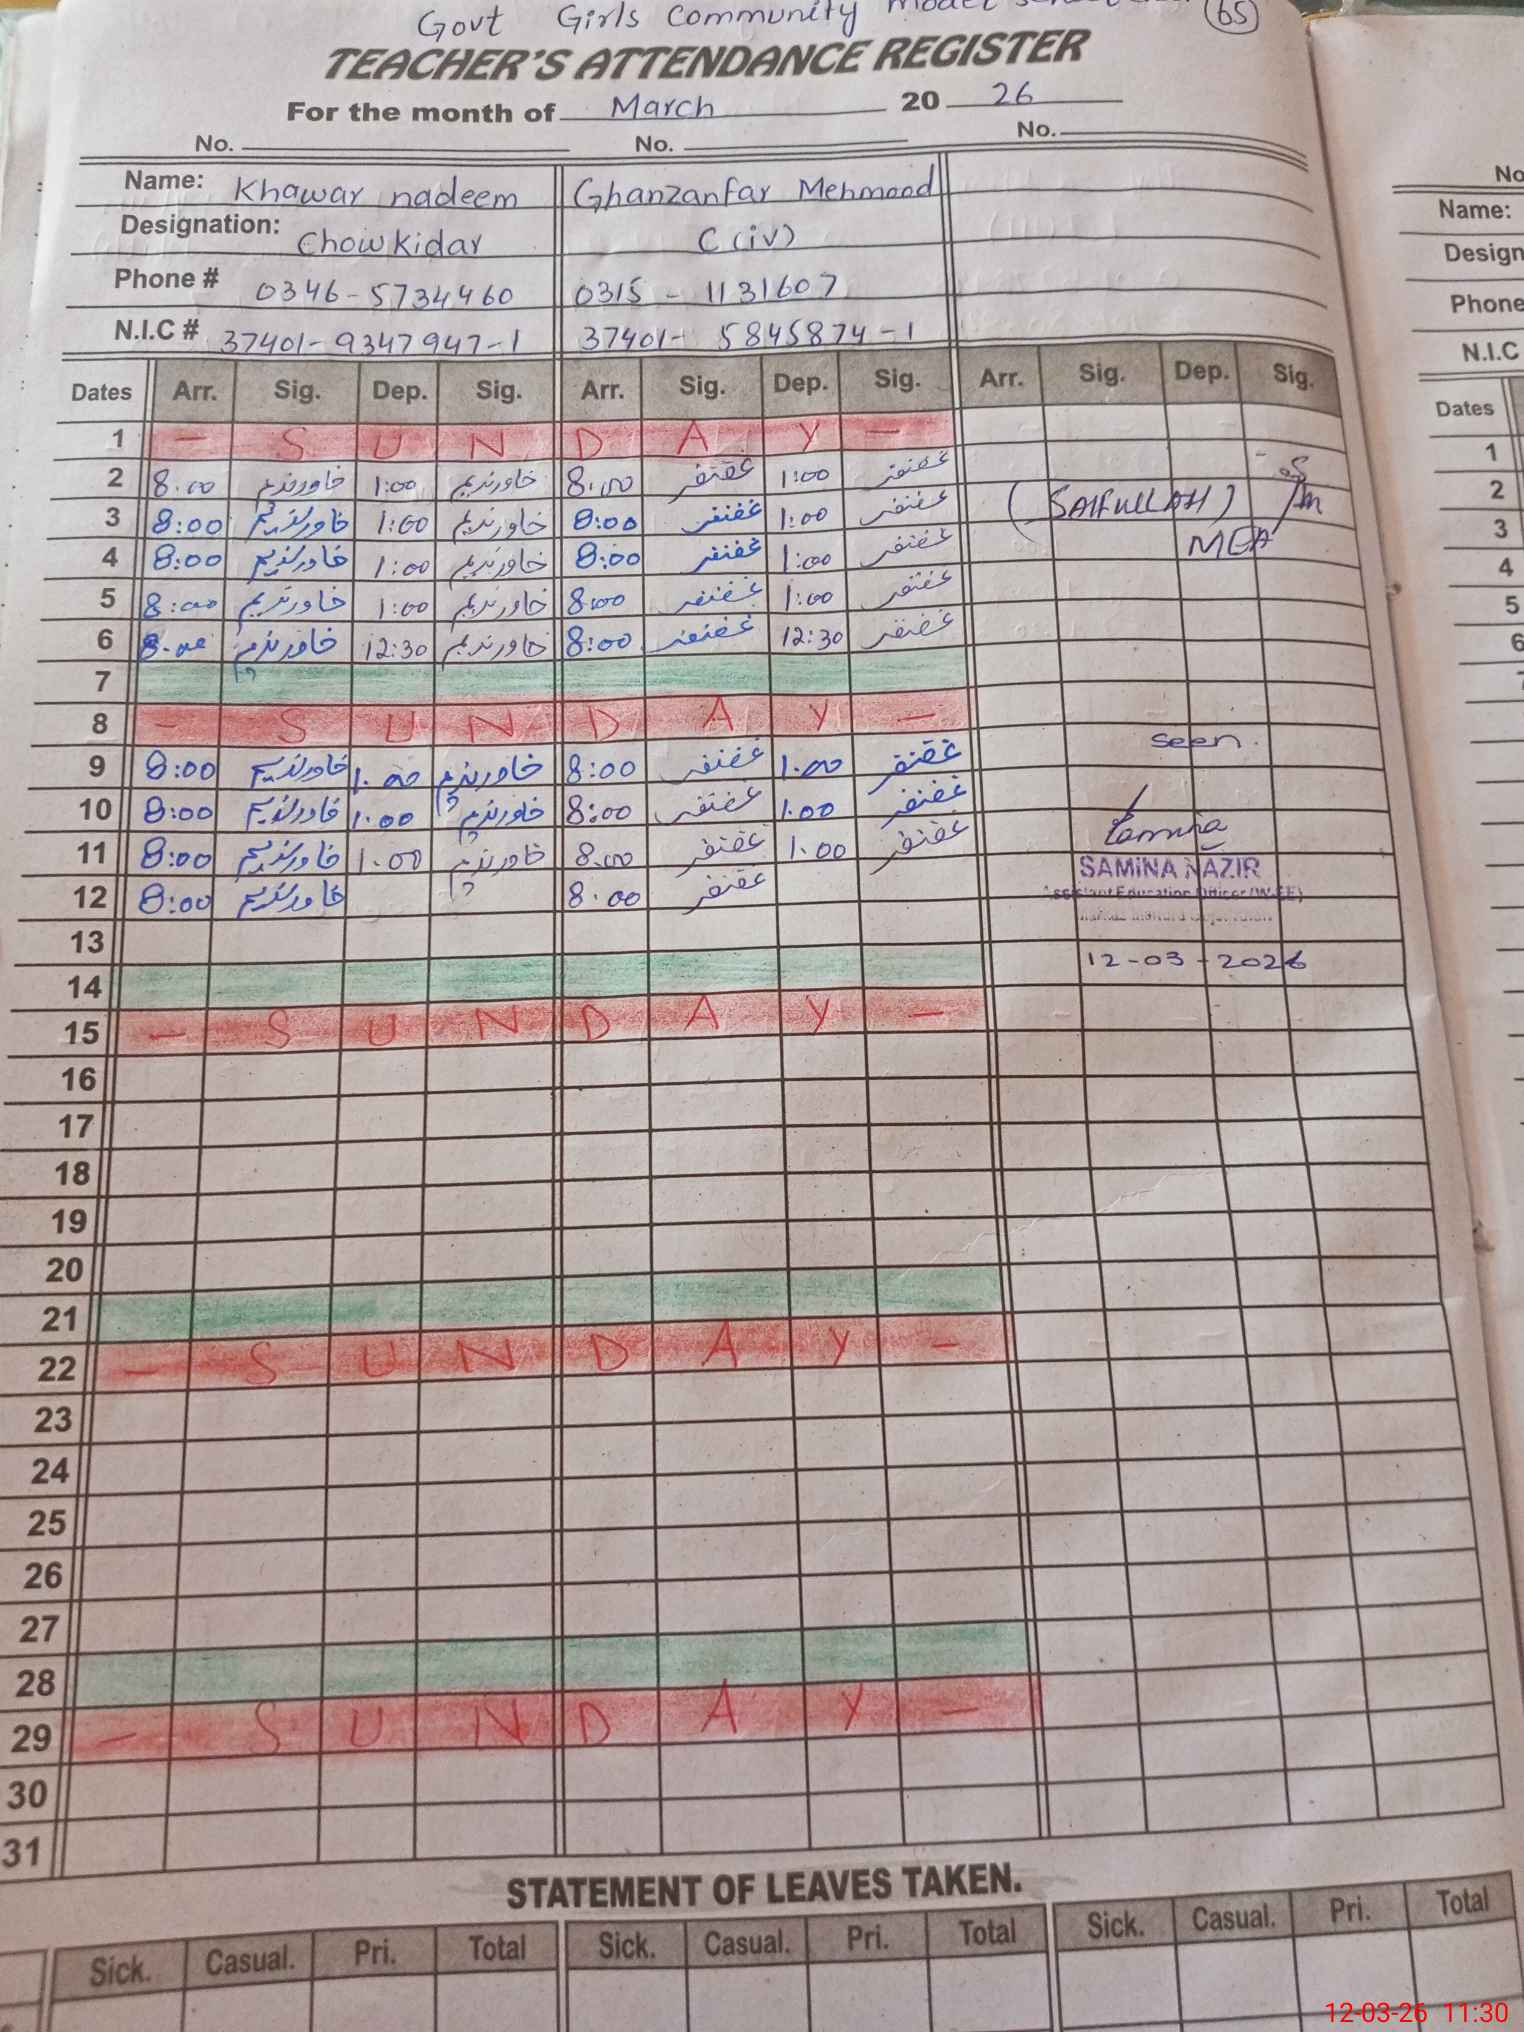 Govt Girls Community Model
65
TEACHER'S ATTENDANCE REGISTER
For the month of March 20 26
No. No. No.
Name: Khawar nadeem Ghanzanfar Mehmood
Designation: Chowkidar C(iv)
Phone # 0346-5734460 0315 - 1131607
N.I.C # 37401-9347947-1 37401- 5845874-1
Dates Arr. Sig. Dep. Sig. Arr. Sig. Dep. Sig. Arr. Sig. Dep. Sig.
1 - S U N D A Y -
2 8.00 خاورندیم 1:00 خاورندیم 8.00 غضنفر 1:00 غضنفر
3 8:00 خاورندیم 1:00 خاورندیم 8:00 غضنفر 1:00 غضنفر (SAIFULLAH)
4 8:00 خاورندیم 1:00 خاورندیم 8:00 غضنفر 1:00 غضنفر MEA
5 8:00 خاورندیم 1:00 خاورندیم 8:00 غضنفر 1:00 غضنفر
6 8.00 خاورندیم 12:30 خاورندیم 8:00 غضنفر 12:30 غضنفر
7
8 - S U N D A Y -
9 8:00 خاورندیم 1.00 خاورندیم 8:00 غضنفر 1.00 غضنفر seen.
10 8:00 خاورندیم 1.00 خاورندیم 8:00 غضنفر 1.00 غضنفر
11 8:00 خاورندیم 1.00 خاورندیم 8.00 غضنفر 1.00 غضنفر Samina
SAMINA NAZIR
12 8:00 خاورندیم 8.00 غضنفر Assistant Education Officer (W-EE)
13
14 12-03-2026
15 - S U N D A Y -
16
17
18
19
20
21
22 - S U N D A Y -
23
24
25
26
27
28
29 - S U N D A Y -
30
31
STATEMENT OF LEAVES TAKEN.
Sick. Casual. Pri. Total Sick. Casual. Pri. Total Sick. Casual. Pri. Total
No
Name:
Design
Phone
N.I.C
Dates
1
2
3
4
5
6
12-03-26 11:30